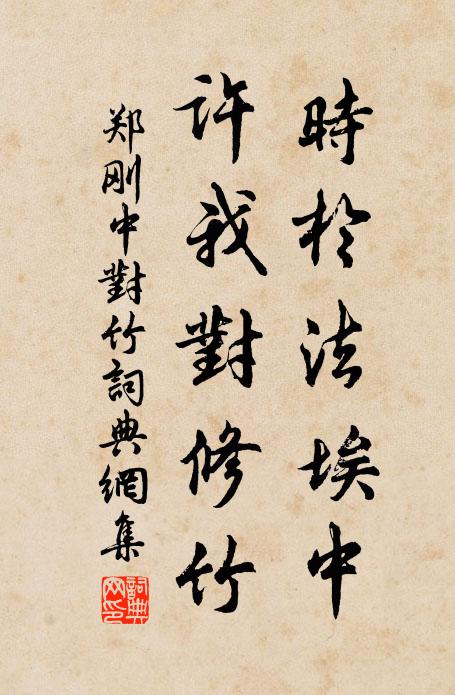 時於法埃中
許我對修竹
郑刚中對竹詞典網集
詞典網印